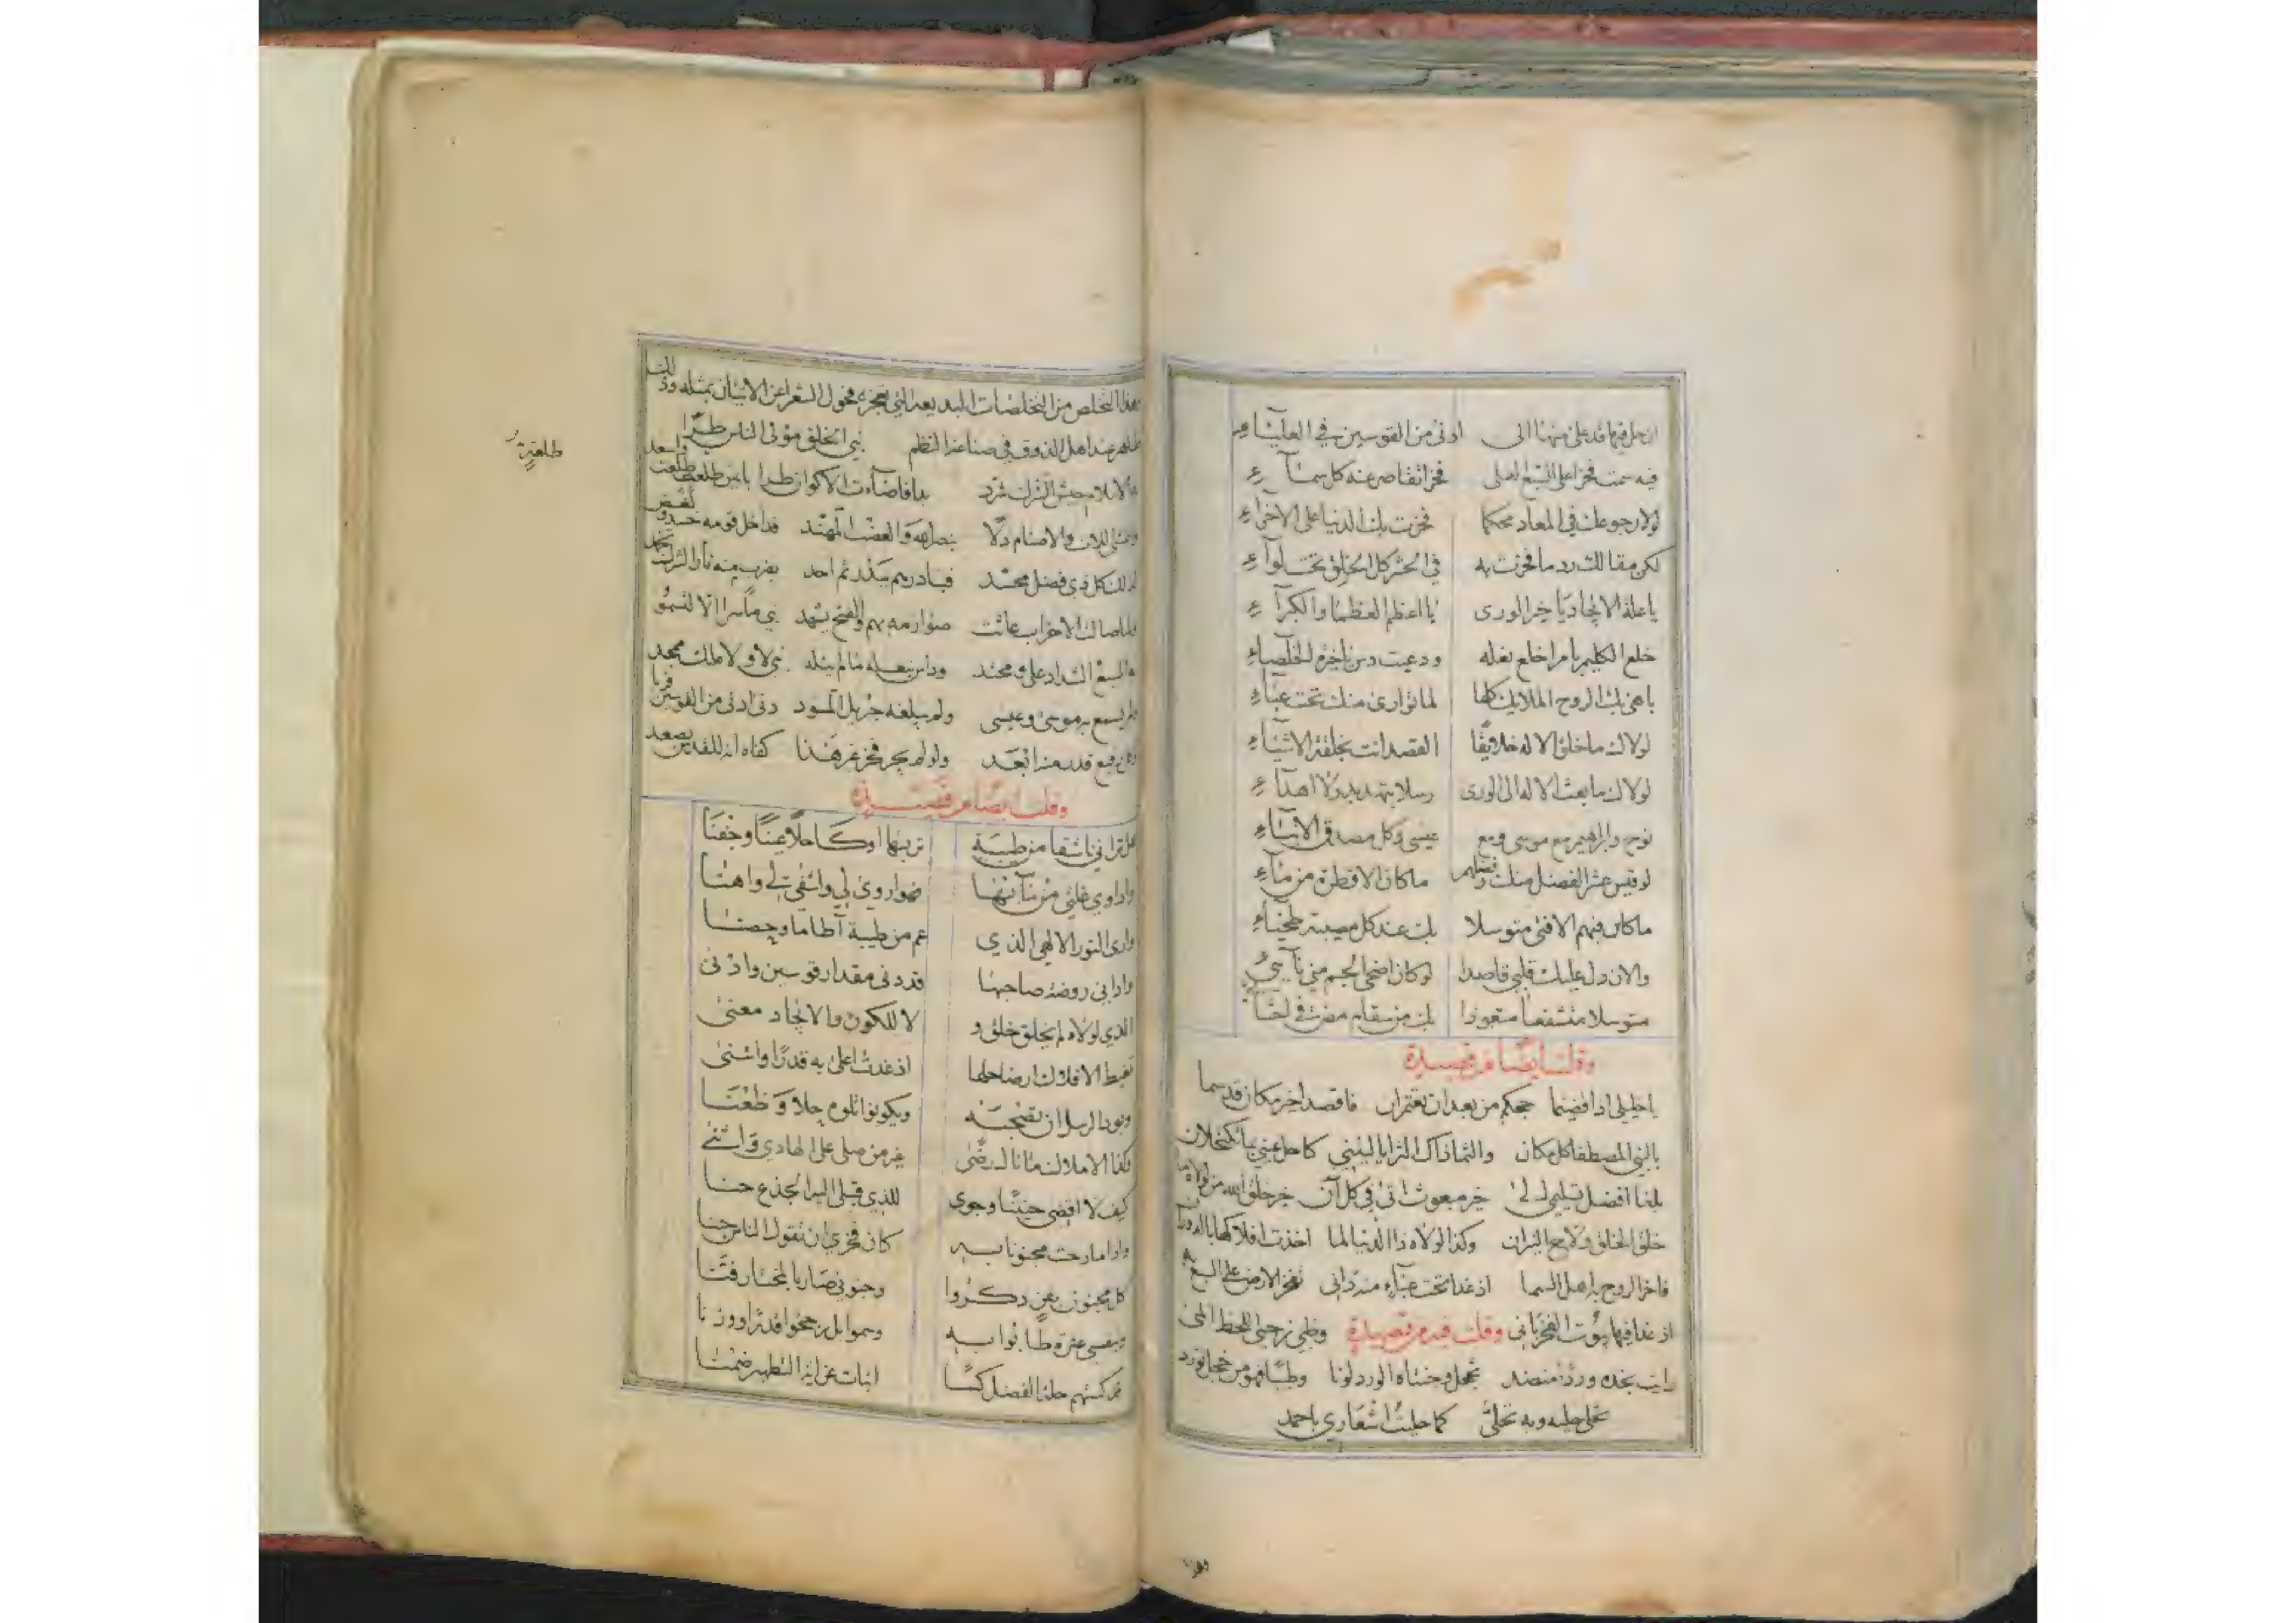 اذ حل فيها قد على منها الى ادنى من القوسين في العلياء
فيه سمت فخرا على السبع العلى فخرا تقاصر عنه كل سماء
لولا رجوعك في المعاد محكما فخرت بك الدنيا على الاخراء
لكن مقالك رد ما فخرت به في الحشر كل الخلق تحت لواء
يا علة الايجاد يا خير الورى يا اعظم العظما والكبراء
خلع الكليم بامر اخلع نعله ودعيت دس
باهى بك الروح الملايك كلها لما توارى منك تحت عباء
لولاك ما خلق الاله خلايقا القصد انت بخلقة الاشياء
لولاك ما بعث الاله الى الورى رسلا
نوح وابراهيم مع موسى ومع عيسى وكل مصدق الانباء
لو قيس عشر الفضل منك وفضلهم ما كان الا قطرة من ماء
ما كان فيهم الا فتى متوسلا بك عند كل مصيبة
والان دل عليك قلبي قاصدا لو كان اضحى الجسم مني نائي
متوسلا متشفعا متعوذا بك من سقام مضرت في
وقلت ايضا من قصيدة
يا خليلي اذا قضيتما حجكم من بعد ان تعتمران فاقصدا خير مكان قد سما
بالنبي المصطفى كل مكان والثما ذاك الثرا يا ليتني كاحل عيني بما تكتحلان
بلغا افضل تسليمي لـ خير مبعوث اتى في كل آن خير خلق الله من لولاه ما
خلق الخلق ولا مع النيران وكذا لولاه ذا الدنيا لما اخذت افلاكها بالدوران
فاخر الروح به اهل السما اذ غدا تحت عباء منه داني تفخر الارض على السبع به
اذ غدا فيها يؤت الفخر باني وقلت فيه من قصيدة وظبي نرجسي اللحظ المى
رايت بخده ورد منضد تخجل وجنتاه الورد لونا وطبا فهو من خجل تورد
تحلى حليه وبه تحلى كما حليت اشعاري باحمد
هذا التخلص من التخلصات البديعة التي تعجز فحول الشعرا عن الاتيان بمثله وذلك
ظاهر عند اهل الذوق في صناعة النظم نبي الخلق مولى الناس طرا واسعد
بالاسلام جيش الشرك شرد بدا فاضاءت الاكوان طرا باين طلعة طلعت
اللات والاصنام دلا والعضب المهند قد اخل قومه
لذلك كل ذي فضل محسد فبادرهم ببدر ثم احد بضرب منه نار الشرك
فلما صالت الاحزاب عاثت صوارمه بهم والفتح يشهد نبي ما سرا الا لتسمو
به السبع الشداد على ومحتد وداس بنعله ما لم ينله نبي لا ولا ملك ممجد
ولم يسمع به موسى وعيسى ولم يبلغه جبريل المسود دنى ادنى من القوسين قربا
وكان رفيع قدر منه ابعد ولو لم يجز فخر غير هذا كفاه انه للقدس يصعد
وقلت ايضا من قصيدة
هل تراني ناشقا من طيبة تربها او كاحلا عينا وجفنا
واداوي غلتي من مائها فهو اروى لي واشفى لي واهنا
وارى النور الالهي الذي عم من طيبة آطاما وحصنا
وارى في روضة صاحبها قد دنى مقدار قوسين وادنى
الذي لولاه لم يخلق خلق و لا للكون والايجاد معنى
تغبط الافلاك ارضا حلها اذ غدت اعلى به قدرا واسنى
ويود الرسل ان تصحبه ويكونوا تلوه حلا وظعنا
وكذا الاملاك ما نال رضى غير من صلى على الهادي واثنى
كيف لا اقضي حنينا وجوى للذي قبلي اليه الجذع حنا
واذا ما رحت مجنونا به كان فخري ان تقول الناس جنا
كل مجنون بمن ذكروا وجنوني صار بالمختار فنا
وبنفسي عترة طابوا به وسموا بل رجحوا قدرا ووزنا
قد كستهم حلة الفضل كسا انبات عن اية التطهير ضمنا
طلعته